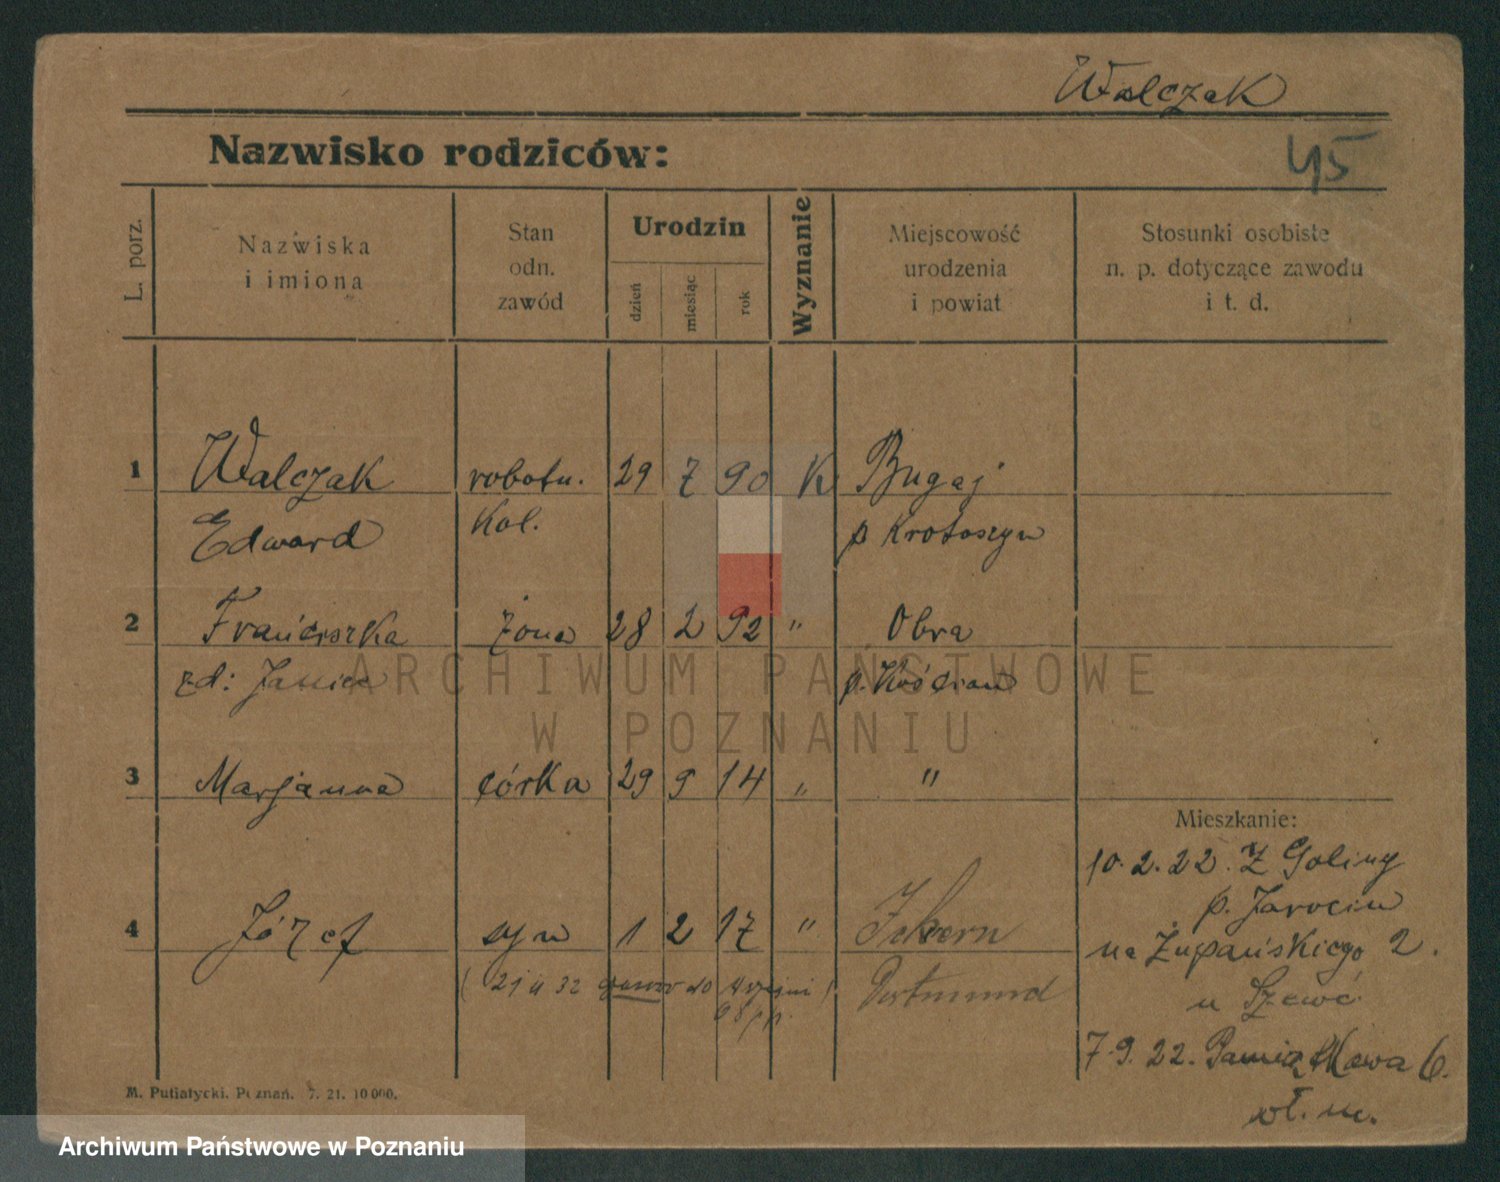 Walczak
Nazwisko rodziców:
45
L. porz.
Nazwiska
i imiona
Stan
odn.
zawód
Urodzin
dzień
miesiąc
rok
Wyznanie
Miejscowość
urodzenia
i powiat
Stosunki osobiste
n. p. dotyczące zawodu
i t. d.
1 Walczak robotn. 29 7 90 K Bugaj
Edward kol. p Krotoszyn
2 Franciszka żona 28 2 92 " Obra
zd: p. Kościan
3 Marjanna córka 29 9 14 " "
Mieszkanie:
10.2.22. Z Goliny
p. Jarocin
4 Józef syn 1 2 17 "
na Żupańskiego 2.
Dortmund
u Szewc
7.9.22. Pamiątkowa 6.
wł. m.
M. Putiatycki. Poznań. 7. 21. 10 000.
ARCHIWUM PAŃSTWOWE
W POZNANIU
Archiwum Państwowe w Poznaniu